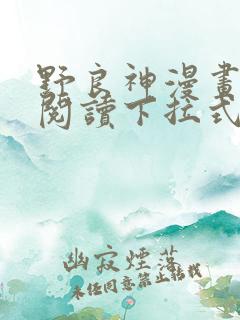 野良神漫畫
閱讀下拉式
幽寂煙落
未经同意禁止转载